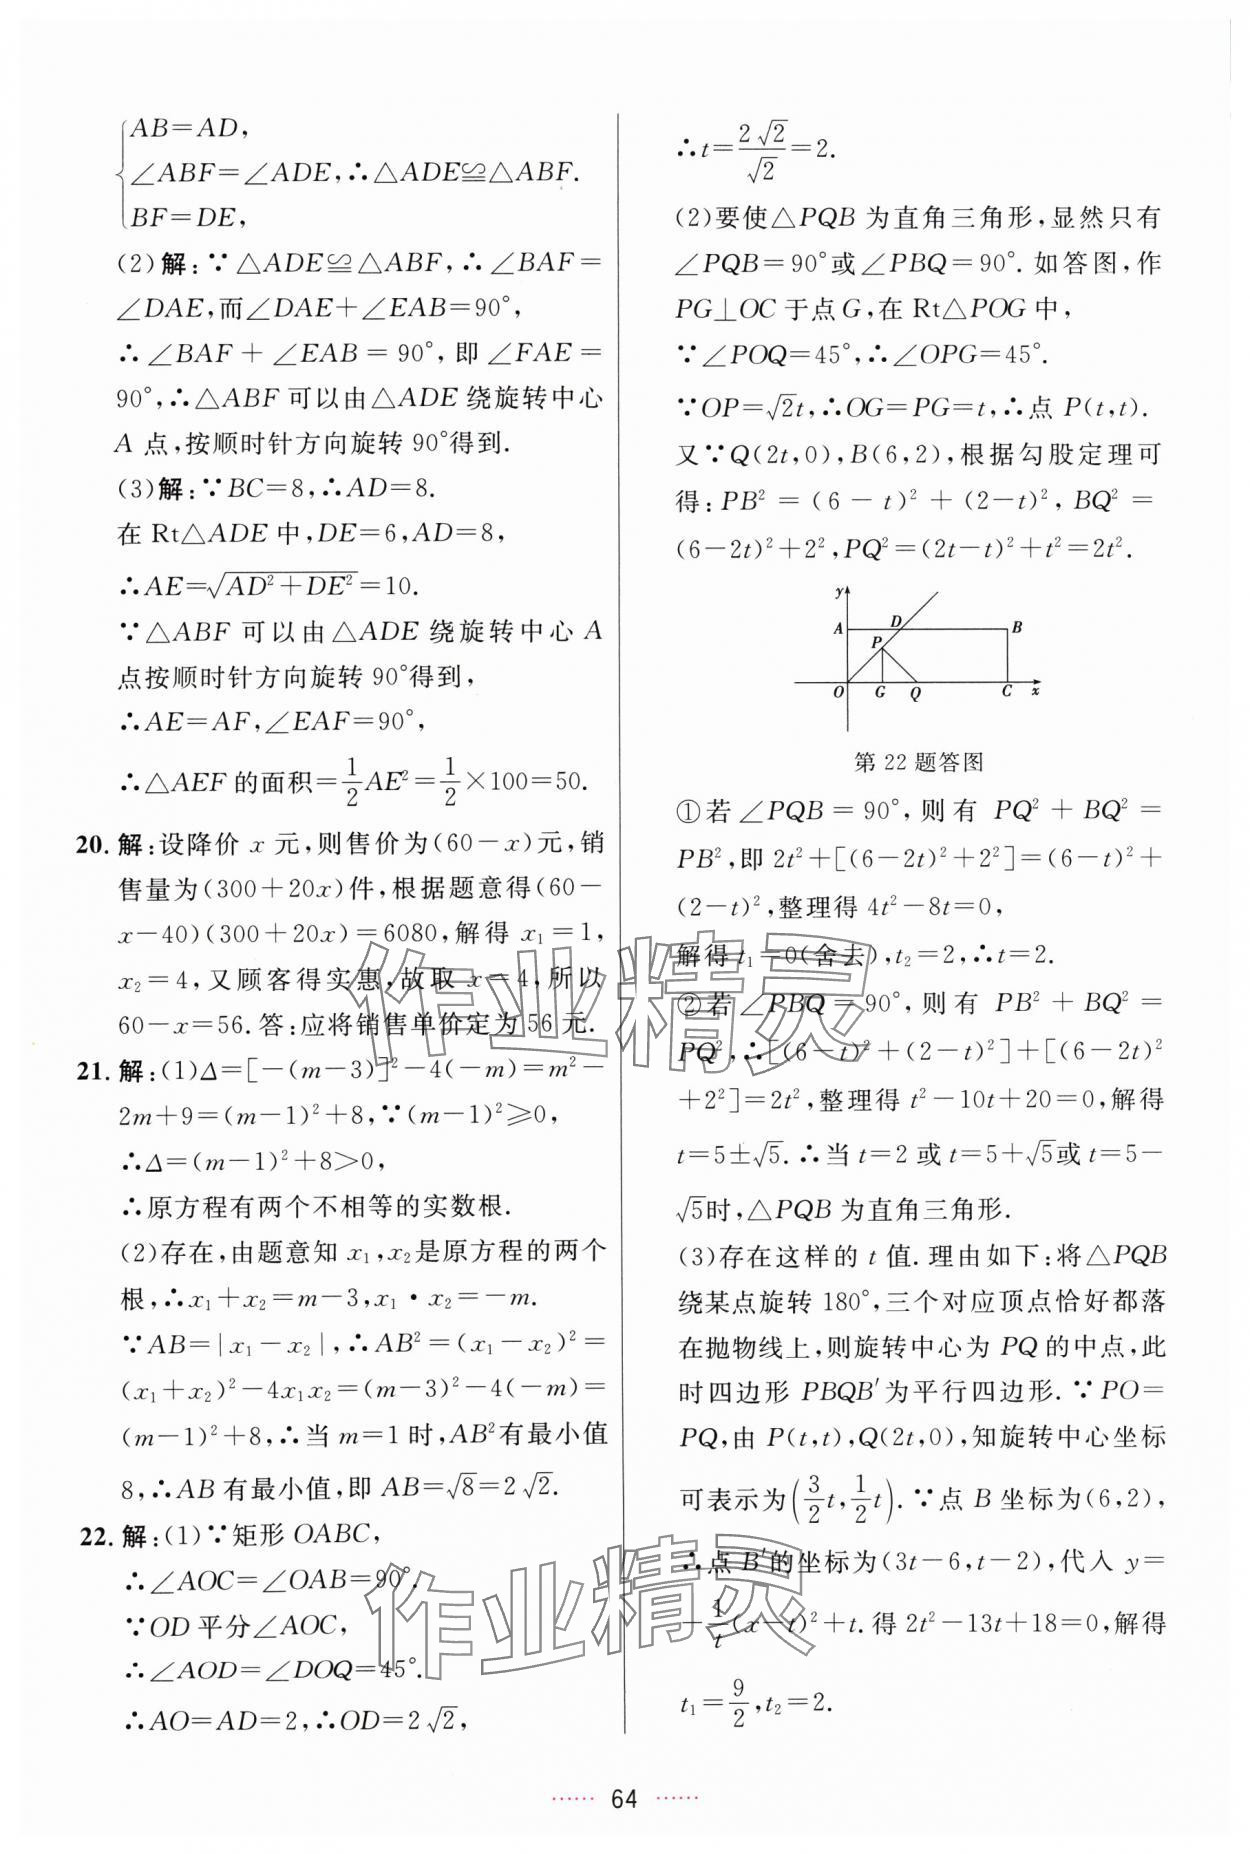 AB=AD,
∠ABF=∠ADE,∴△ADE≌△ABF.
BF=DE,
(2)解:∵△ADE≌△ABF,∴∠BAF=
∠DAE,而∠DAE+∠EAB=90°,
∴∠BAF+∠EAB=90°,即∠FAE=
90°,∴△ABF可以由△ADE绕旋转中心
A点,按顺时针方向旋转90°得到.
(3)解:∵BC=8,∴AD=8.
在Rt△ADE中,DE=6,AD=8,
∴AE=√(AD²+DE²)=10.
∵△ABF可以由△ADE绕旋转中心A
点按顺时针方向旋转90°得到,
∴AE=AF,∠EAF=90°,
∴△AEF的面积=1/2AE²=1/2×100=50.
20.解:设降价x元,则售价为(60-x)元,销
售量为(300+20x)件,根据题意得(60-
x-40)(300+20x)=6080,解得x₁=1,
x₂=4,又顾客得实惠,故取x=4,所以
60-x=56.答:应将销售单价定为56元.
21.解:(1)Δ=[-(m-3)]²-4(-m)=m²-
2m+9=(m-1)²+8,∵(m-1)²≥0,
∴Δ=(m-1)²+8>0,
∴原方程有两个不相等的实数根.
(2)存在,由题意知x₁,x₂是原方程的两个
根,∴x₁+x₂=m-3,x₁·x₂=-m.
∵AB=|x₁-x₂|,∴AB²=(x₁-x₂)²=
(x₁+x₂)²-4x₁x₂=(m-3)²-4(-m)=
(m-1)²+8,∴当m=1时,AB²有最小值
8,∴AB有最小值,即AB=√8=2√2.
22.解:(1)∵矩形OABC,
∴∠AOC=∠OAB=90°.
∵OD平分∠AOC,
∴∠AOD=∠DOQ=45°.
∴AO=AD=2,∴OD=2√2,
∴t=2√2/√2=2.
(2)要使△PQB为直角三角形,显然只有
∠PQB=90°或∠PBQ=90°.如答图,作
PG⊥OC于点G,在Rt△POG中,
∵∠POQ=45°,∴∠OPG=45°.
∵OP=√2t,∴OG=PG=t,∴点P(t,t).
又∵Q(2t,0),B(6,2),根据勾股定理可
得:PB²=(6-t)²+(2-t)²,BQ²=
(6-2t)²+2²,PQ²=(2t-t)²+t²=2t².
y
A D B
P
O G Q C x
第22题答图
①若∠PQB=90°,则有PQ²+BQ²=
PB²,即2t²+[(6-2t)²+2²]=(6-t)²+
(2-t)²,整理得4t²-8t=0,
解得t₁=0(舍去),t₂=2,∴t=2.
②若∠PBQ=90°,则有PB²+BQ²=
PQ²,∴[(6-t)²+(2-t)²]+[(6-2t)²
+2²]=2t²,整理得t²-10t+20=0,解得
t=5±√5.∴当t=2或t=5+√5或t=5-
√5时,△PQB为直角三角形.
(3)存在这样的t值.理由如下:将△PQB
绕某点旋转180°,三个对应顶点恰好都落
在抛物线上,则旋转中心为PQ的中点,此
时四边形PBQB′为平行四边形.∵PO=
PQ,由P(t,t),Q(2t,0),知旋转中心坐标
可表示为(3/2t,1/2t).∵点B坐标为(6,2),
∴点B′的坐标为(3t-6,t-2),代入y=
-1/t(x-t)²+t.得2t²-13t+18=0,解得
t₁=9/2,t₂=2.
作业精灵
作业精灵
64